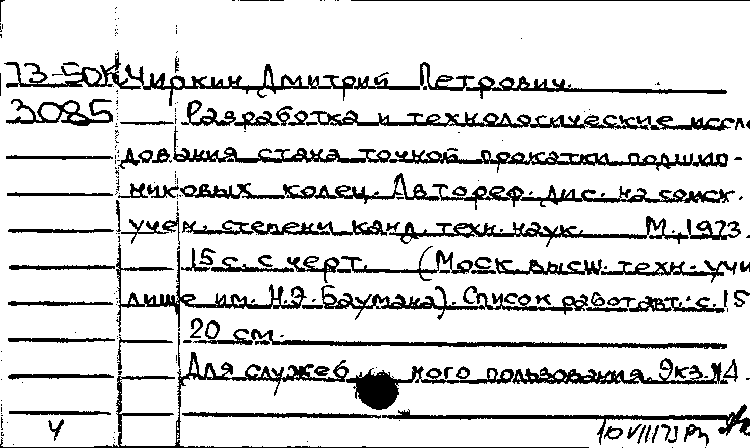 73-50К Чиркин, Дмитрий Петрович.
3085 Разработка и технологические иссле
дования стана точной прокатки подшип-
никовых колец. Автореф. дис. на соиск.
учен. степени канд. техн. наук. М., 1973.
15 с. с черт. (Моск. высш. техн. учи
лище им. Н.Э. Баумана). Список работ авт.: с. 15
20 см.
Для служебного пользования. Экз. №
Ч